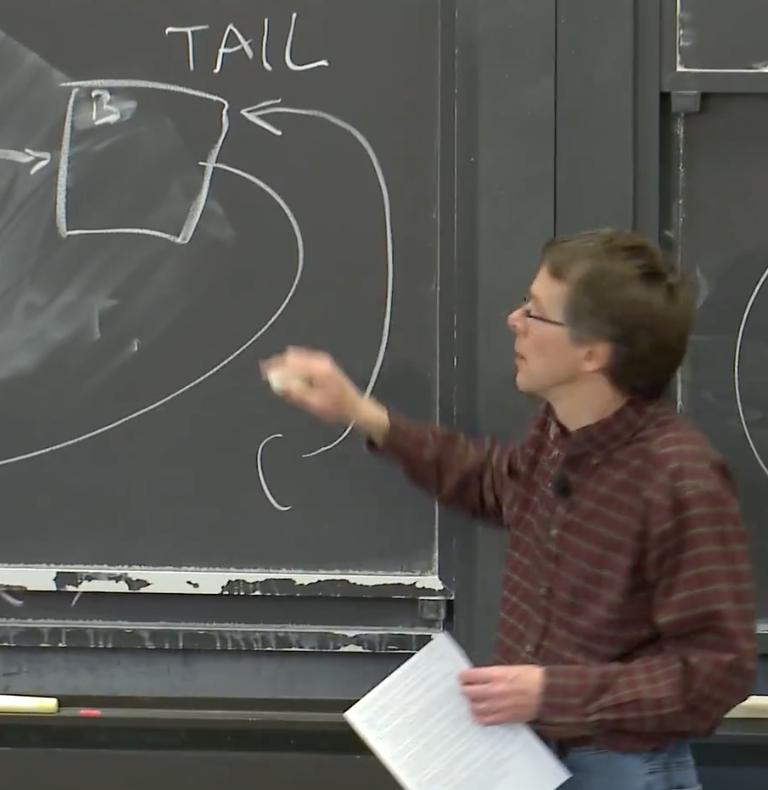 TAIL
B
C